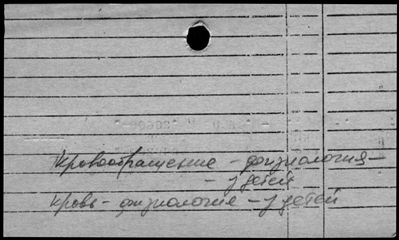 Кровообращение - физиология -
- у детей
Кровь - физиология - у детей